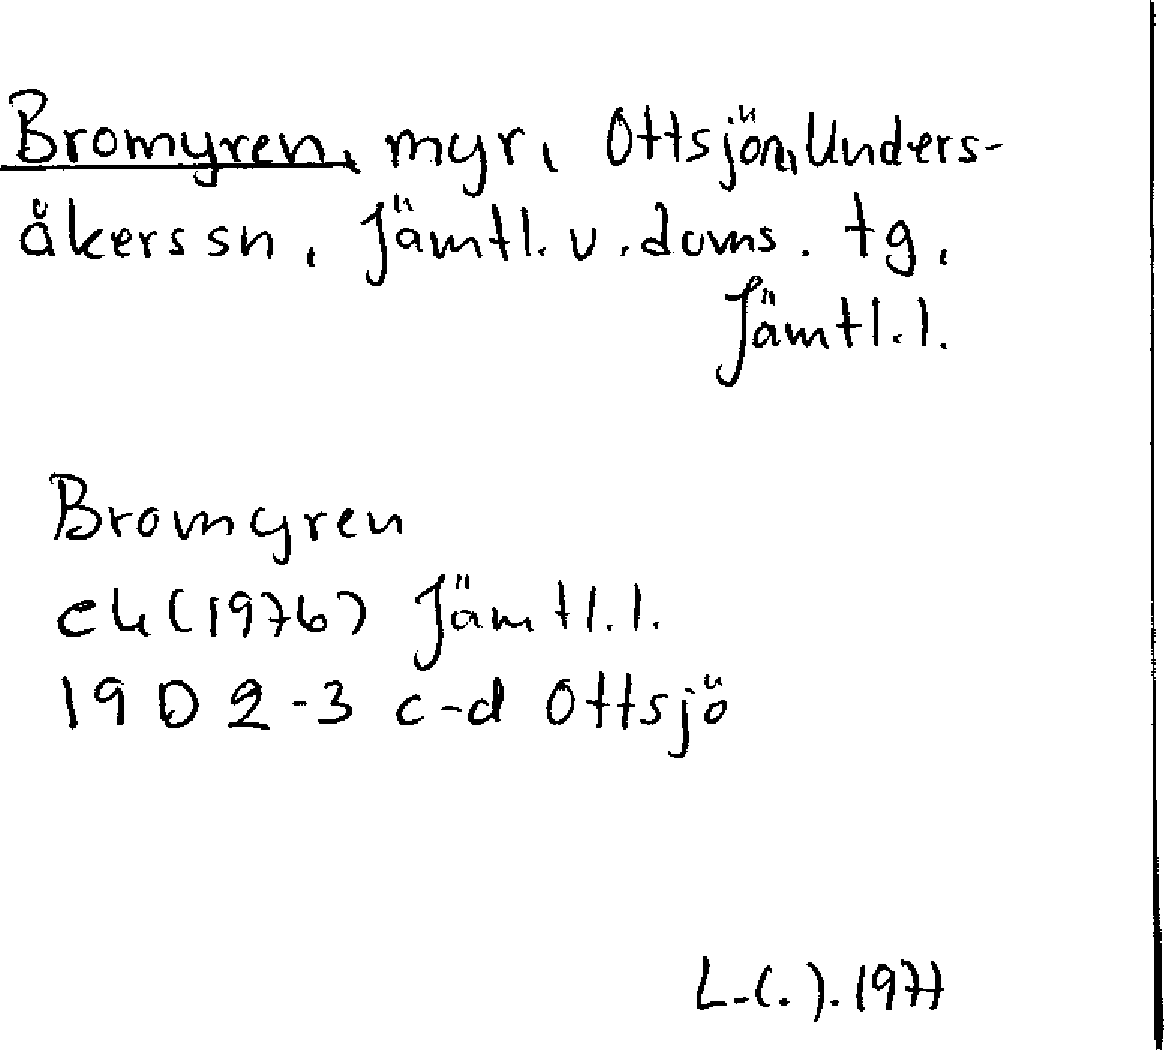 Bromyren, myr, Ottsjön, Unders-
åkers sn, Jämtl. v. doms. tg,
Jämtl. l.
Bromyren
ek (1976) Jämtl. l.
19 D 2-3 c-d Ottsjö
1977